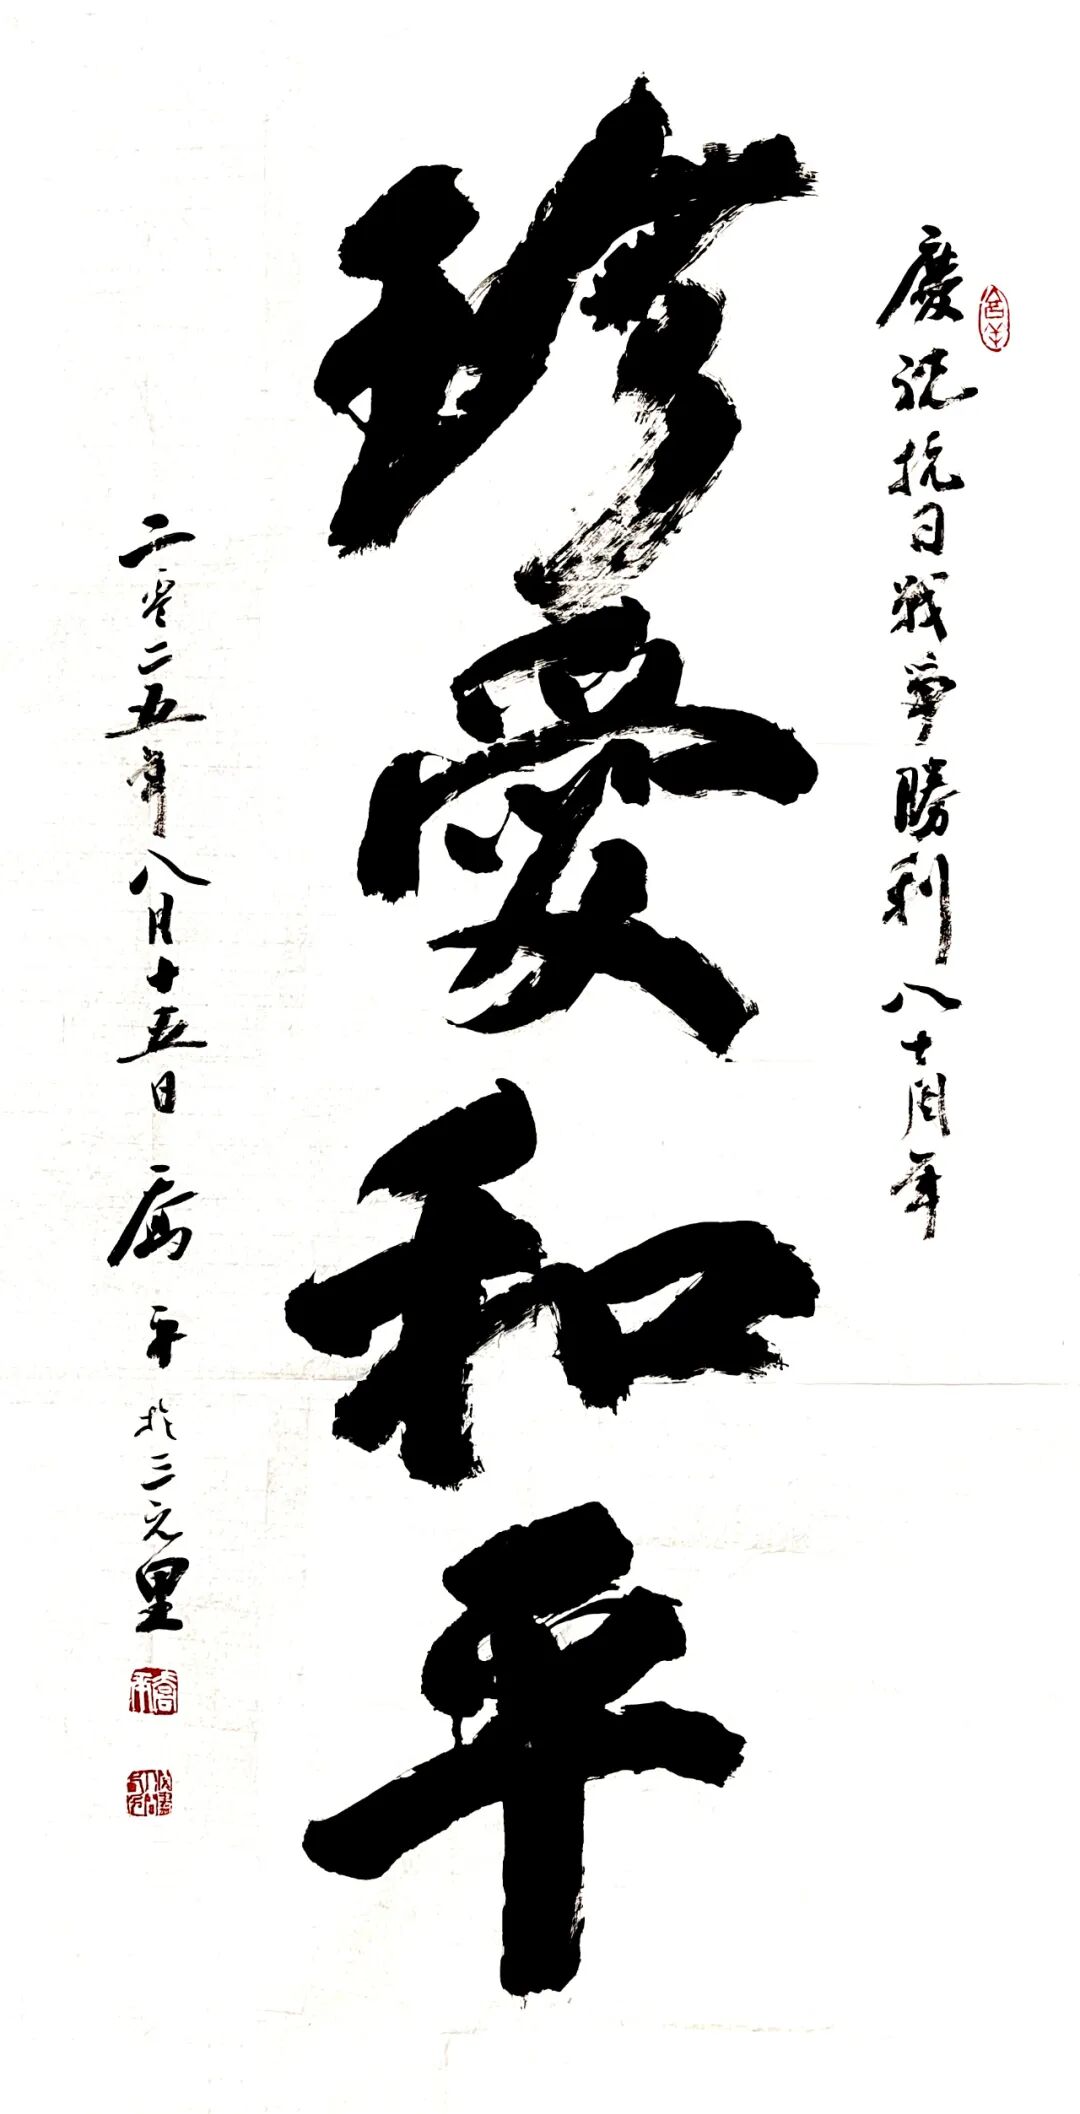 慶祝抗日戰爭勝利八十周年
珍愛和平
二零二五年八月十五日 喬平於三元里